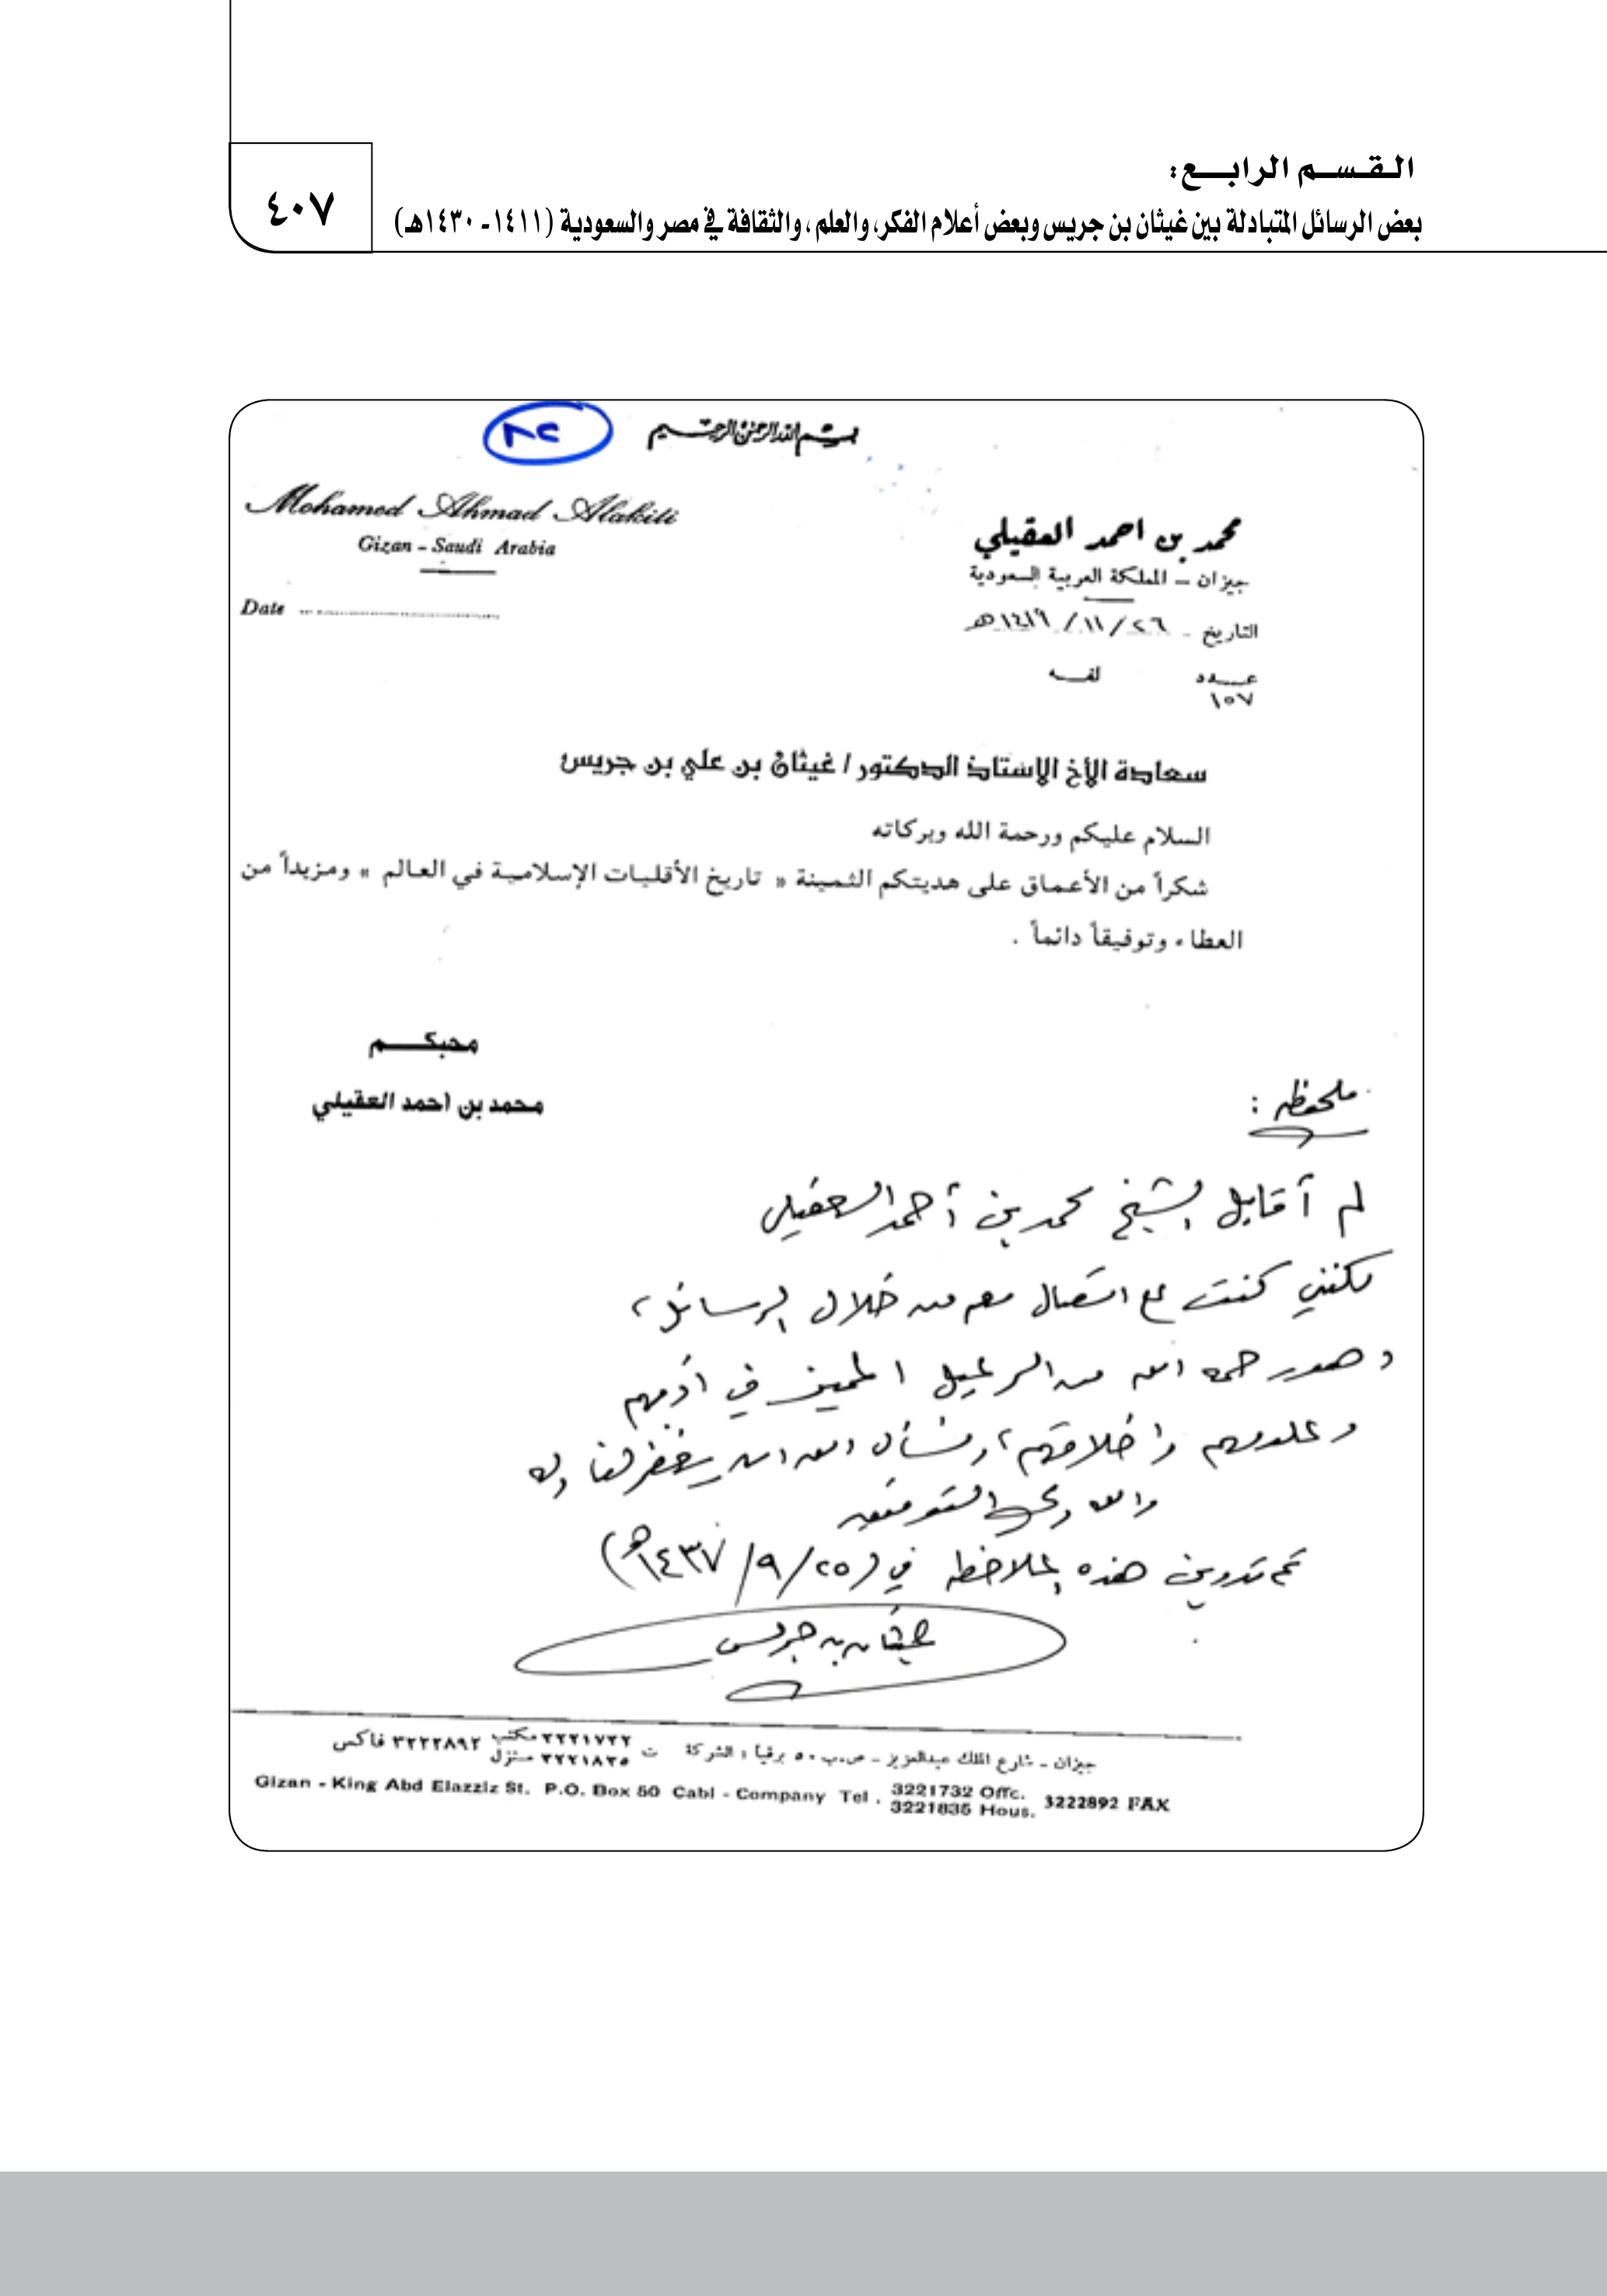 القسم الرابع:
بعض الرسائل المتبادلة بين غيثان بن جريس وبعض أعلام الفكر، والعلم، والثقافة في مصر والسعودية (١٤١١- ١٤٣٠هـ)
٤٠٧
بسم الله الرحمن الرحيم
محمد بن احمد العقيلي
جيزان – المملكة العربية السعودية
التاريخ - ٢٦ / ١١ / ١٤١٩هـ
عـــدد لفـــه
١٥٧
Mohamed Ahmad Alakili
Gizan – Saudi Arabia
Date ..............................
سعادة الأخ الاستاذ الدكتور / غيثان بن علي بن جريس
السلام عليكم ورحمة الله وبركاته
شكراً من الأعماق على هديتكم الثمينة « تاريخ الأقليات الإسلامية في العالم » ومزيداً من
العطاء وتوفيقاً دائماً .
محبكـــم
محمد بن احمد العقيلي
ملحوظه :
لم أقابل الشيخ محمد بن أحمد العقيلي
لكنني كنت على اتصال معه من خلال الرسائل،
وهو رحمه الله من الرعيل المميز في أدبهم
وعلومهم وأخلاقهم، ونسأل الله ان يغفر لنا وله
والله ولي التوفيق
تم تدوين هذه الملاحظه في (٢٥/ ٩/ ١٤٣٧هـ)
غيثان بن جريس
جيزان – شارع الملك عبدالعزيز – ص.ب ٥٠ برقياً : الشركة ت ٣٢٢١٧٣٢ مكتب ٣٢٢٢٨٩٢ فاكس
٣٢٢١٨٣٥ منزل
Gizan - King Abd Elazziz St. P.O. Box 50 Cabl - Company Tel . 3221732 Offc. 3222892 FAX
3221835 Hous.